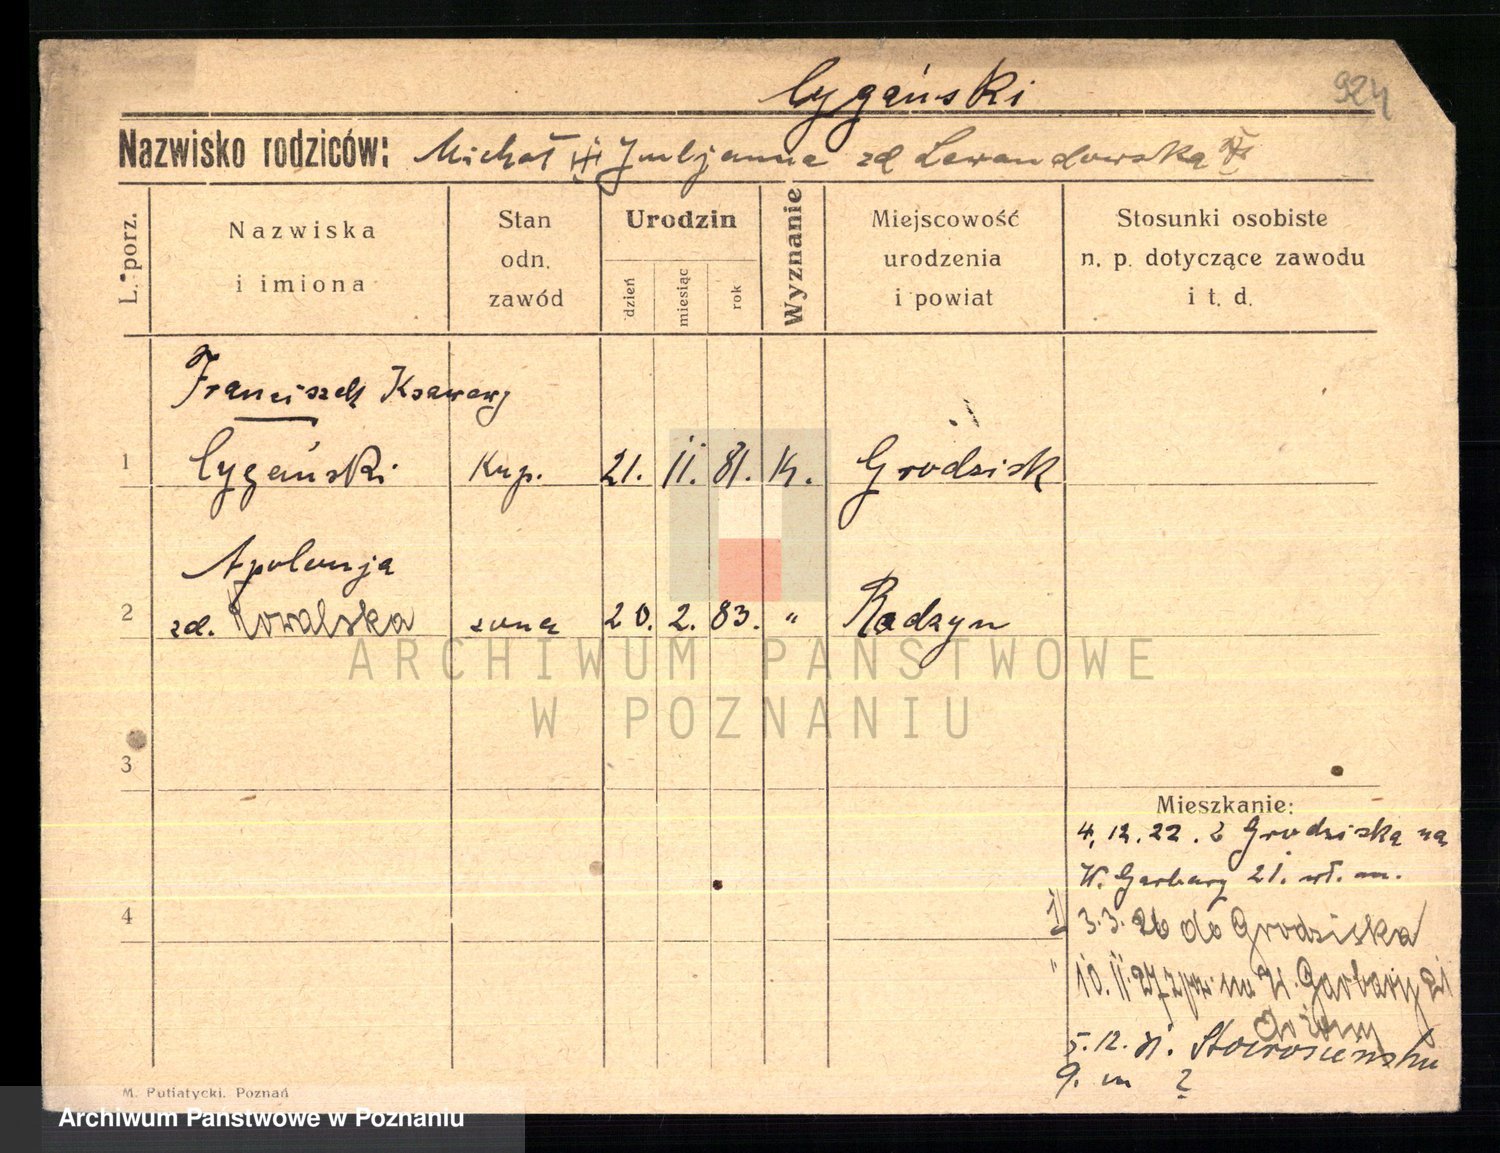 Cygański
924
Nazwisko rodziców: Michał Juljanna zd Lewandowska
L. porz.
Nazwiska
i imiona
Stan
odn.
zawód
Urodzin
dzień
miesiąc
rok
Wyznanie
Miejscowość
urodzenia
i powiat
Stosunki osobiste
n. p. dotyczące zawodu
i t. d.
Franciszek Ksawery
1 Cygański Kup. 21. 11. 81. k. Grodzisk
Apolonja
2 zd. Kowalska żona 20. 2. 83. " Radzyn
ARCHIWUM PAŃSTWOWE
W POZNANIU
3
Mieszkanie:
4. 12. 22. z Grodziska na
W. Garbary 21. wł. m.
4
1) 3.3.26 do Grodziska
" 10. 11. 27 na W. Garbary 21
do żony
5. 12. 31.
9. m ?
M. Putiatycki. Poznań
Archiwum Państwowe w Poznaniu